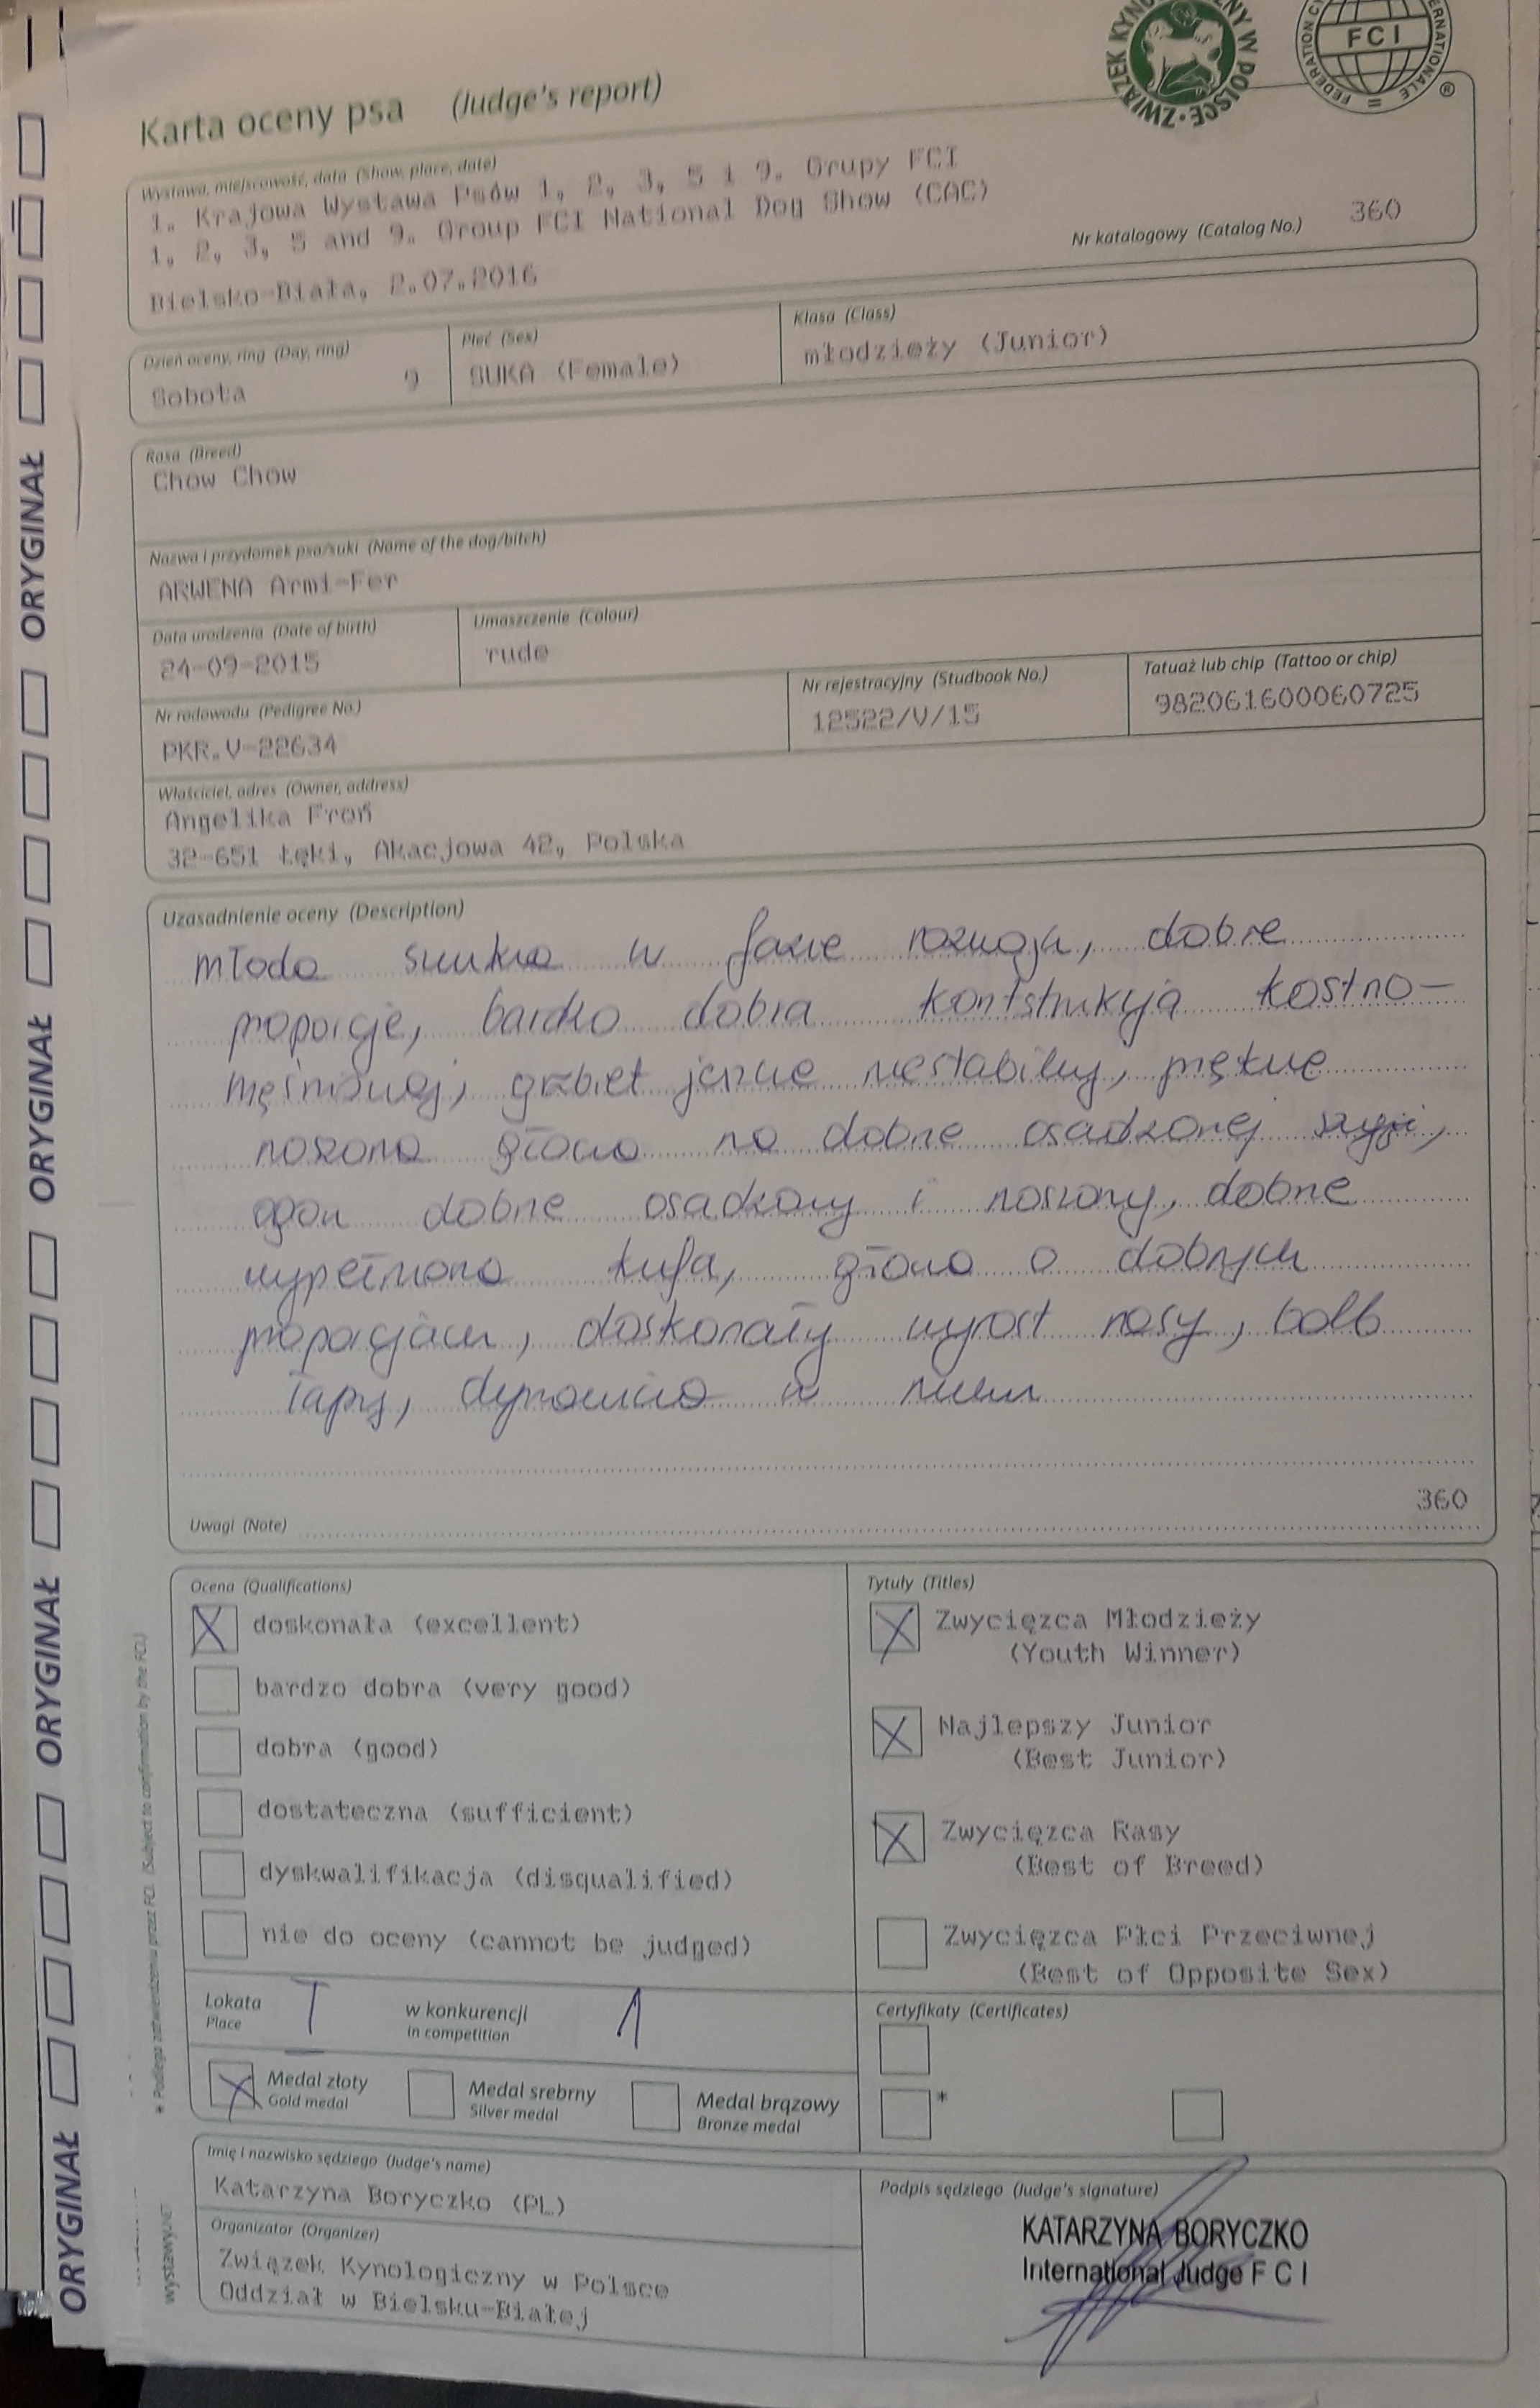 Karta oceny psa (Judge's report)
ZWIĄZEK KYNOLOGICZNY W POLSCE
FCI
®
Wystawa, miejscowość, data (Show, place, date)
1. Krajowa Wystawa Psów 1, 2, 3, 5 i 9. Grupy FCI
1, 2, 3, 5 and 9. Group FCI National Dog Show (CAC)
Bielsko-Biała, 2.07.2016
Nr katalogowy (Catalog No.) 360
Dzień oceny, ring (Day, ring)
Sobota 9
Płeć (Sex)
SUKA (Female)
Klasa (Class)
młodzieży (Junior)
Rasa (Breed)
Chow Chow
Nazwa i przydomek psa/suki (Name of the dog/bitch)
ARWENA Armi-Fer
Data urodzenia (Date of birth)
24-09-2015
Umaszczenie (Colour)
rude
Nr rodowodu (Pedigree No.)
PKR.V-22634
Nr rejestracyjny (Studbook No.)
12522/V/15
Tatuaż lub chip (Tattoo or chip)
982061600060725
Właściciel, adres (Owner, address)
Angelika Froń
32-651 Łęki, Akacjowa 42, Polska
Uzasadnienie oceny (Description)
młoda sunka w fazie rozwoju, dobre
proporcje, bardzo dobra kontstrukcja kostno-
mięśniowej, grzbiet jeszcze niestabilny, pięknie
noszona głowa na dobrze osadzonej szyji,
ogon dobrze osadzony i noszony, dobrze
wypełniona kufa, głowa o dobrych
proporcjach, doskonały wyrost rasy,
łapy, dynamiczna w ruchu
360
Uwagi (Note)
Ocena (Qualifications)
X doskonała (excellent)
bardzo dobra (very good)
dobra (good)
dostateczna (sufficient)
dyskwalifikacja (disqualified)
nie do oceny (cannot be judged)
Tytuły (Titles)
X Zwycięzca Młodzieży
(Youth Winner)
X Najlepszy Junior
(Best Junior)
X Zwycięzca Rasy
(Best of Breed)
Zwycięzca Płci Przeciwnej
(Best of Opposite Sex)
Lokata I w konkurencji 1
Place in competition
X Medal złoty Medal srebrny Medal brązowy
Gold medal Silver medal Bronze medal
Certyfikaty (Certificates)
*
Imię i nazwisko sędziego (Judge's name)
Katarzyna Boryczko (PL)
Organizator (Organizer)
Związek Kynologiczny w Polsce
Oddział w Bielsku-Białej
Podpis sędziego (Judge's signature)
KATARZYNA BORYCZKO
International Judge F C I
* Podlega zatwierdzeniu przez FCI. (Subject to confirmation by the FCI.)
ORYGINAŁ ORYGINAŁ ORYGINAŁ ORYGINAŁ